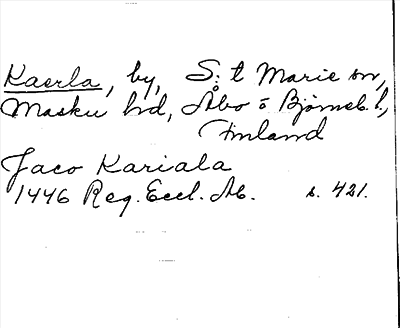 Kaerla, by, S:t Marie sn,
Masku hd, Åbo o Björneb. l.,
Finland
Jaco Kariala
1446 Reg. Eccl. Ab. s. 421.